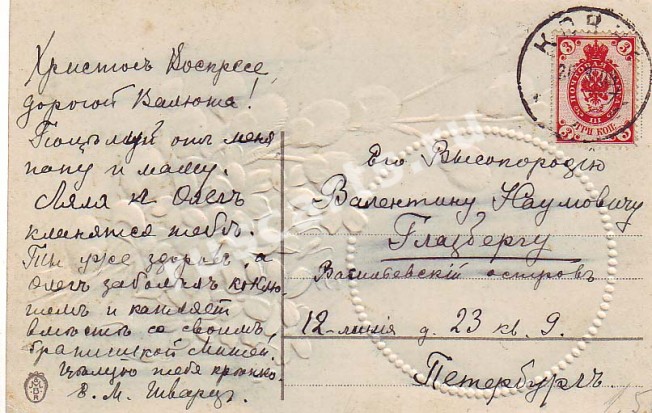 Христосъ Воскресе,
дорогой Валюша!
Поцѣлуй отъ меня
папу и маму.
Ляля и Олегъ
кланятся тебѣ.
Ты уже здоровъ, а
Олегъ заболѣлъ коклю-
шемъ и кашляет
вмѣстѣ со своимъ
братишкой Мишей.
Цѣлую тебя крѣпко.
В. М. Шварцъ.
Его Высокородію
Валентину Наумовичу
Глазбергу
Васильевскій островъ
12-линія д. 23 кв. 9.
Петербургъ.
3 3
ПОЧТОВАЯ МАРКА
ТРИ КОП.
3 3